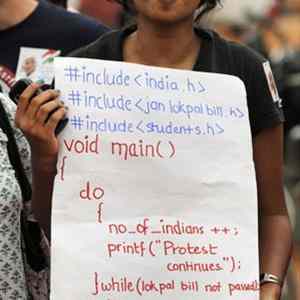 #include<india.h>
#include<jan lokpal bill.h>
#include<students.h>
void main()
{
do
{
no_of_indians ++;
printf("Protest
continues");
}while(lokpal bill not passed